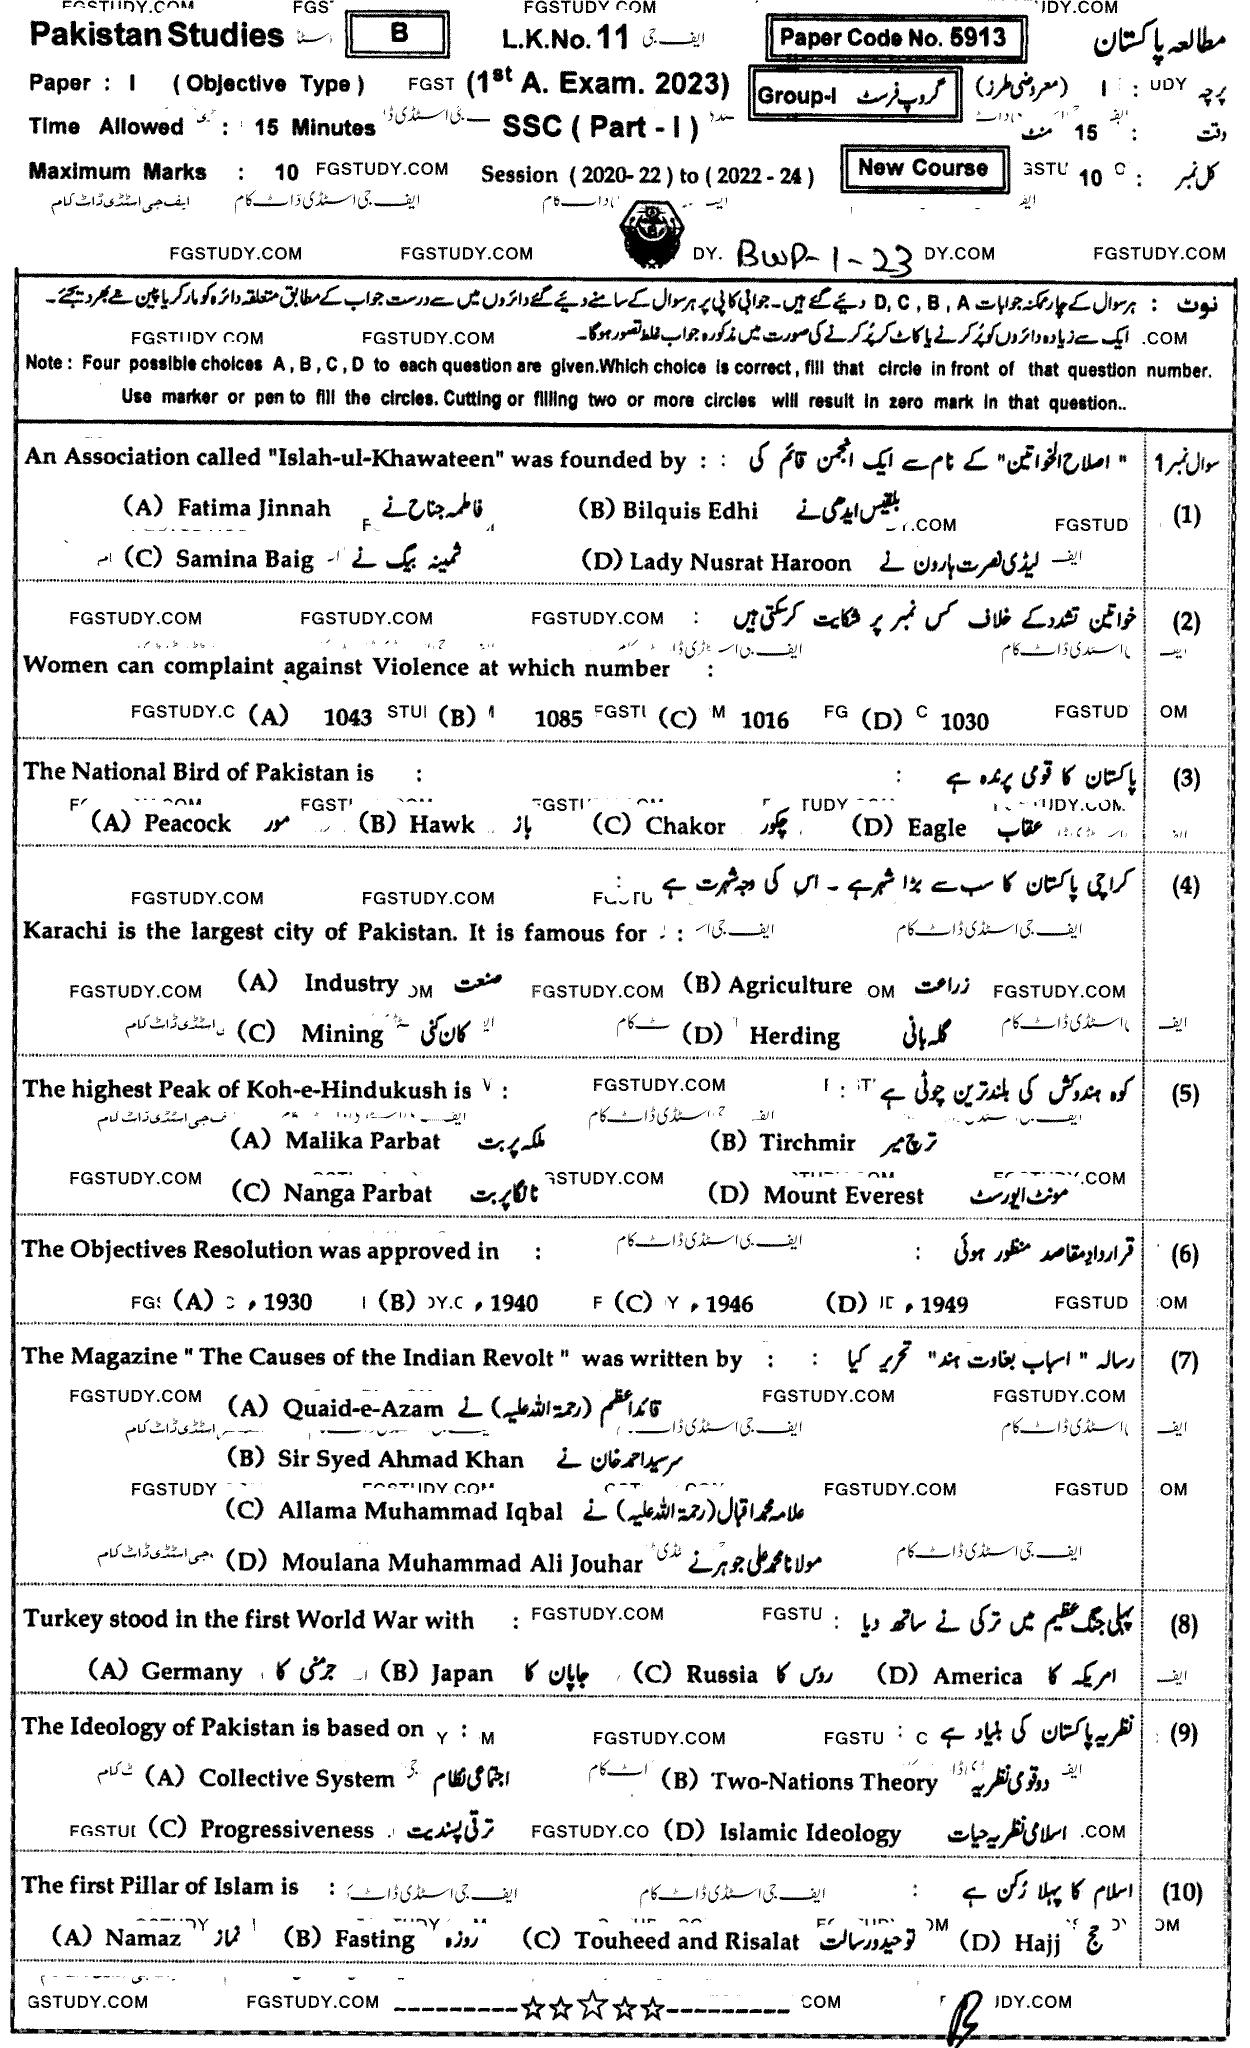 FGSTUDY.COM FGSTUDY.COM
Pakistan Studies B L.K.No. 11 Paper Code No. 5913 مطالعہ پاکستان
Paper : I ( Objective Type ) (1st A. Exam. 2023) Group-I گروپ فرسٹ پرچہ : I (معروضی طرز)
Time Allowed : 15 Minutes SSC ( Part - I ) وقت : 15 منٹ
Maximum Marks : 10 FGSTUDY.COM Session ( 2020- 22 ) to ( 2022 - 24 ) New Course کل نمبر : 10
FGSTUDY.COM FGSTUDY.COM BWP-1-23 FGSTUDY.COM
نوٹ : ہر سوال کے چار ممکنہ جوابات D, C , B , A دیئے گئے ہیں۔ جوابی کاپی پر ہر سوال کے سامنے دیئے گئے دائروں میں سے درست جواب کے مطابق متعلقہ دائرہ کو مارکر یا پین سے بھر دیجئے۔
ایک سے زیادہ دائروں کو پُر کرنے یا کاٹ کر پُر کرنے کی صورت میں مذکورہ جواب غلط تصور ہوگا۔
Note : Four possible choices A , B , C , D to each question are given.Which choice is correct , fill that circle in front of that question number.
Use marker or pen to fill the circles. Cutting or filling two or more circles will result in zero mark in that question..
An Association called "Islah-ul-Khawateen" was founded by : : " اصلاح الخواتین" کے نام سے ایک انجمن قائم کی سوال نمبر 1
(A) Fatima Jinnah فاطمہ جناح نے (B) Bilquis Edhi بلقیس ایدھی نے (1)
(C) Samina Baig ثمینہ بیگ نے (D) Lady Nusrat Haroon لیڈی نصرت ہارون نے
خواتین تشدد کے خلاف کس نمبر پر شکایت کرسکتی ہیں : (2)
Women can complaint against Violence at which number :
(A) 1043 (B) 1085 (C) 1016 (D) 1030
The National Bird of Pakistan is : : پاکستان کا قومی پرندہ ہے (3)
(A) Peacock مور (B) Hawk باز (C) Chakor چکور (D) Eagle عقاب
کراچی پاکستان کا سب سے بڑا شہر ہے ۔ اس کی وجہ شہرت ہے : (4)
Karachi is the largest city of Pakistan. It is famous for :
(A) Industry صنعت (B) Agriculture زراعت
(C) Mining کان کنی (D) Herding گلہ بانی
The highest Peak of Koh-e-Hindukush is : : کوہ ہندوکش کی بلند ترین چوٹی ہے (5)
(A) Malika Parbat ملکہ پربت (B) Tirchmir ترچ میر
(C) Nanga Parbat نانگا پربت (D) Mount Everest مونٹ ایورسٹ
The Objectives Resolution was approved in : : قرارداد مقاصد منظور ہوئی (6)
(A) 1930ء (B) 1940ء (C) 1946ء (D) 1949ء
The Magazine " The Causes of the Indian Revolt " was written by : : رسالہ " اسباب بغاوت ہند" تحریر کیا (7)
(A) Quaid-e-Azam قائداعظم (رحمۃ اللہ علیہ) نے
(B) Sir Syed Ahmad Khan سرسید احمد خان نے
(C) Allama Muhammad Iqbal علامہ محمد اقبال (رحمۃ اللہ علیہ) نے
(D) Moulana Muhammad Ali Jouhar مولانا محمد علی جوہر نے
Turkey stood in the first World War with : : پہلی جنگ عظیم میں ترکی نے ساتھ دیا (8)
(A) Germany جرمنی کا (B) Japan جاپان کا (C) Russia روس کا (D) America امریکہ کا
The Ideology of Pakistan is based on : : نظریہ پاکستان کی بنیاد ہے (9)
(A) Collective System اجتماعی نظام (B) Two-Nations Theory دو قومی نظریہ
(C) Progressiveness ترقی پسندیت (D) Islamic Ideology اسلامی نظریہ حیات
The first Pillar of Islam is : : اسلام کا پہلا رکن ہے (10)
(A) Namaz نماز (B) Fasting روزہ (C) Touheed and Risalat توحید و رسالت (D) Hajj حج
GSTUDY.COM FGSTUDY.COM